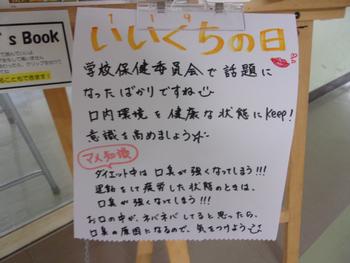 's Book
1 1 9 8
いいくちの日
学校保健委員会で話題に
なったばかりですね
口内環境を健康な状態にKeep!
意識を高めましょう
マメ知識
ダイエット中は口臭が強くなってしまう!!!
運転をして疲労した状態のときは、
口臭が強くなってしまう!!!
お口の中が、ネバネバしてると思ったら、
口臭の原因になるので、気をつけよう